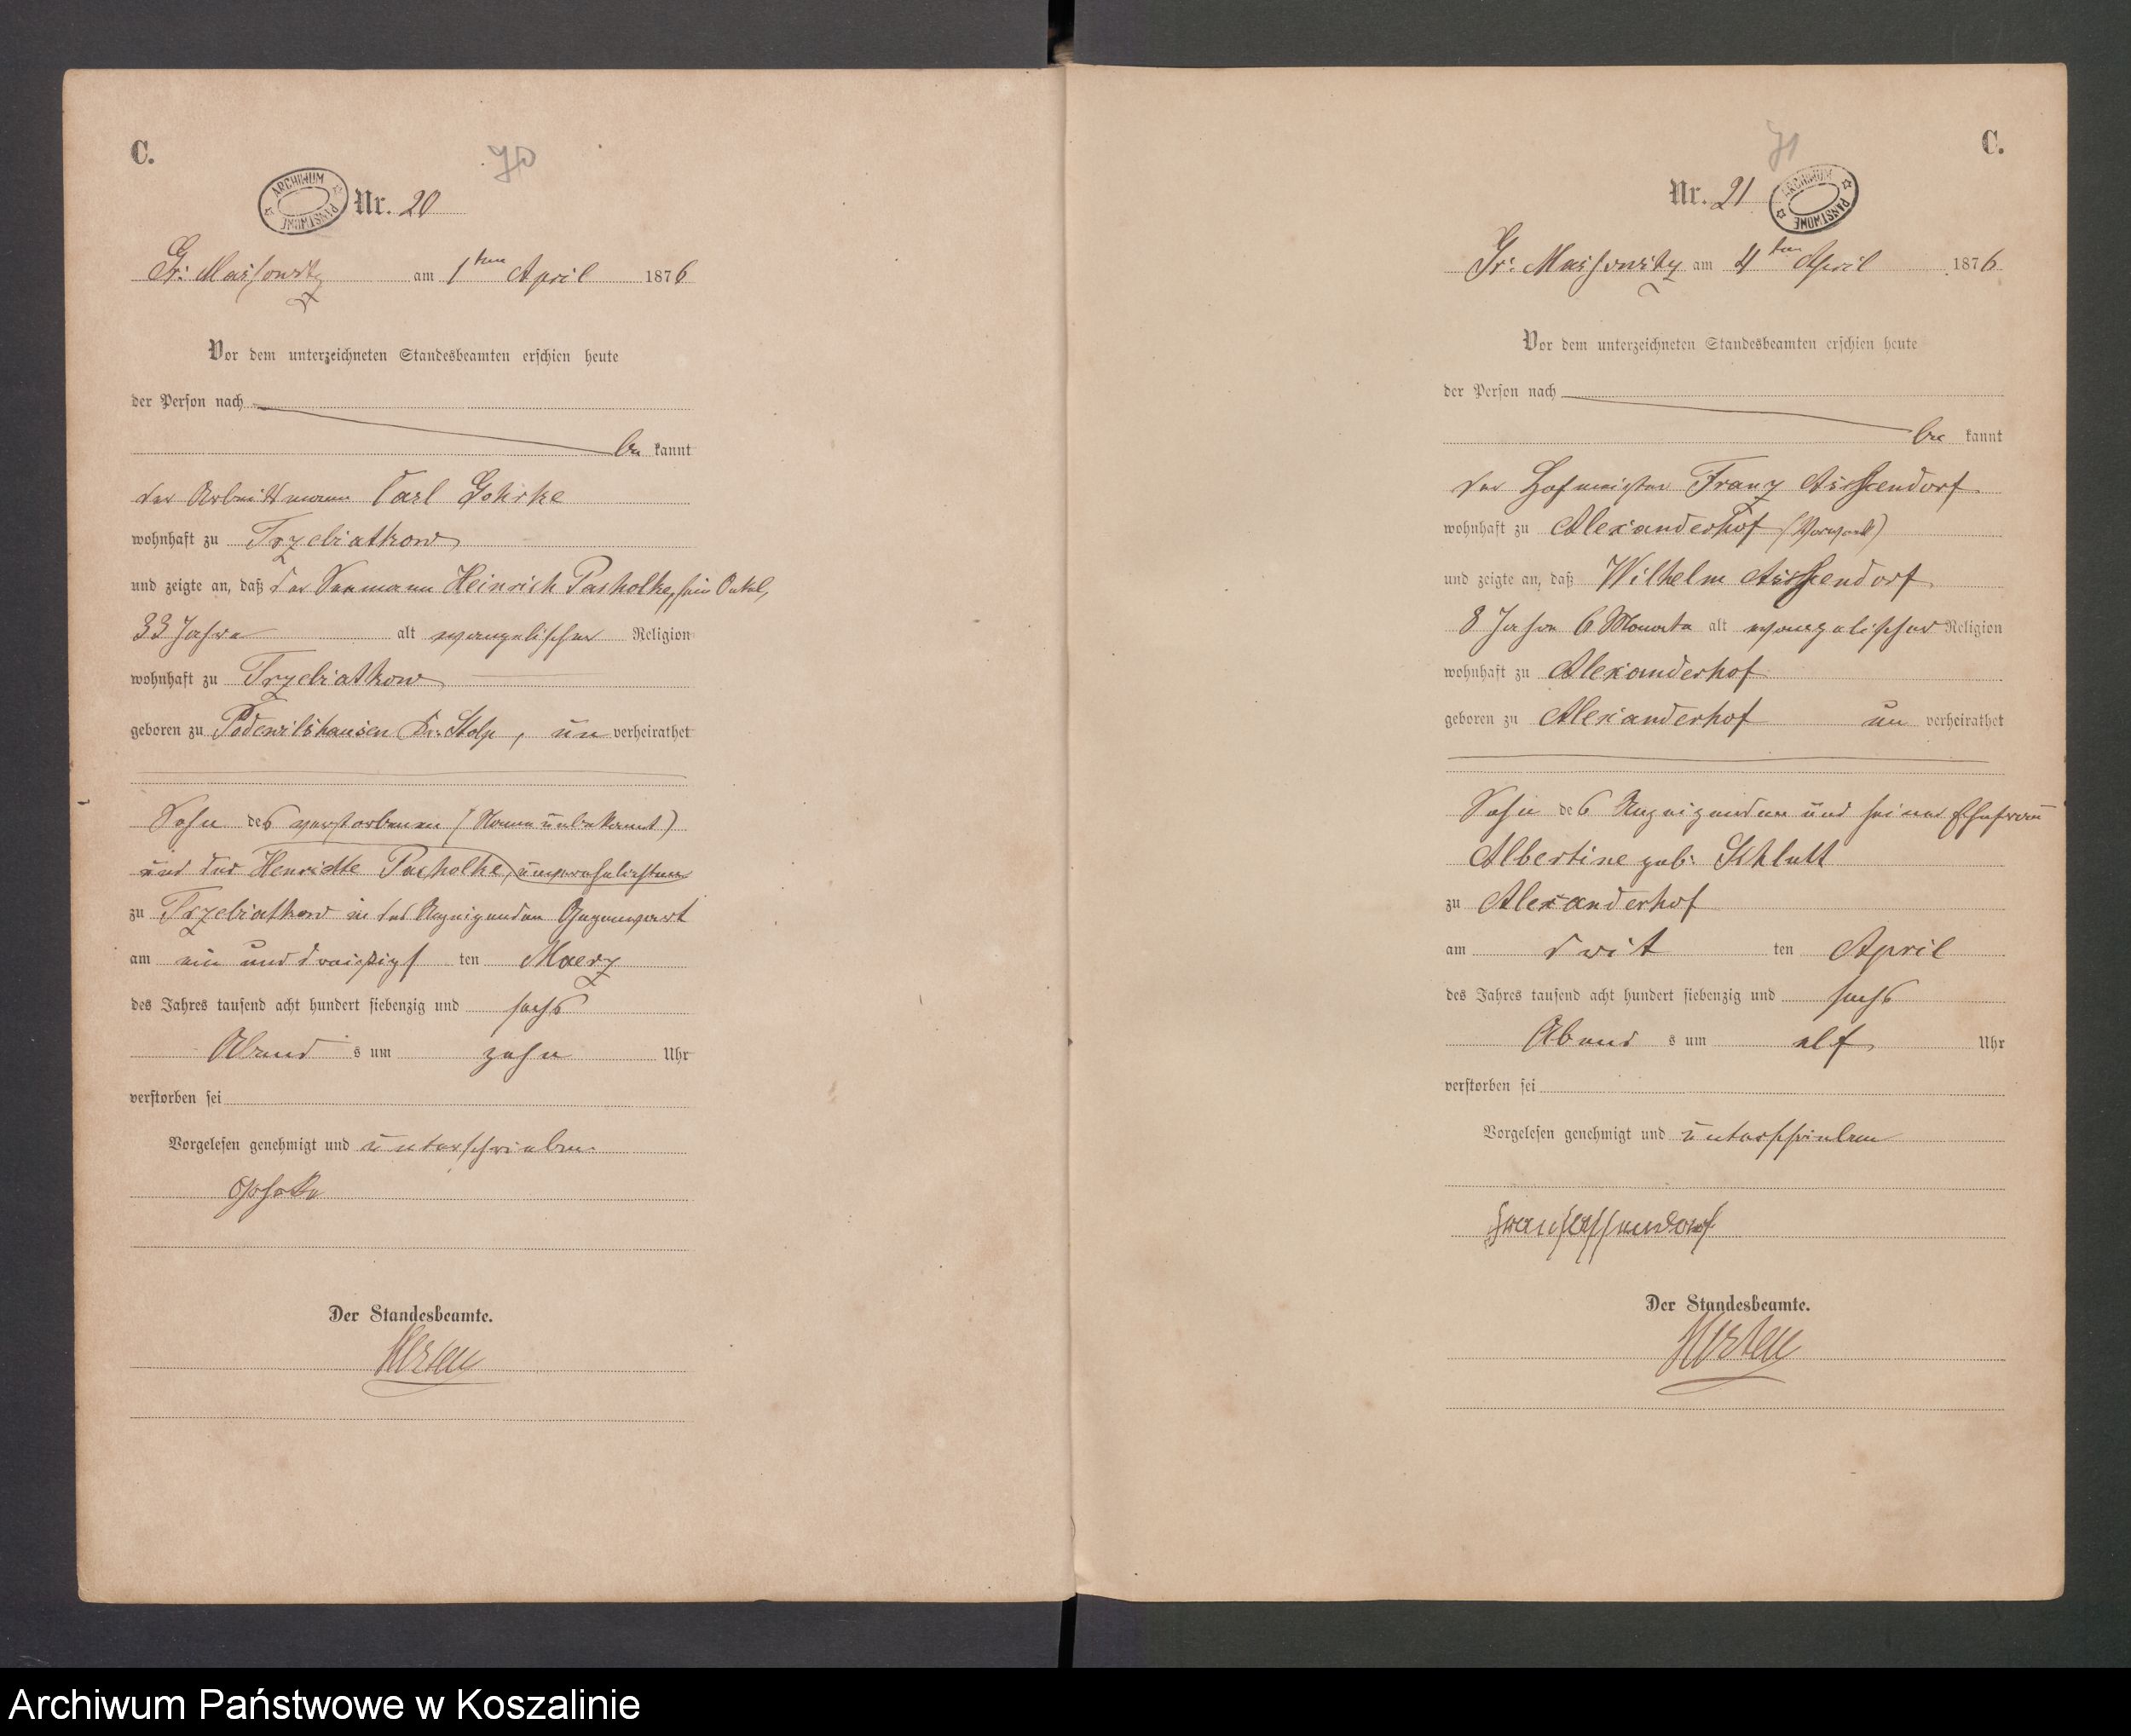 C.
70
ARCHIWUM PAŃSTWOWE
Nr. 20
Gr: Massowitz am 1ten April 1876
Vor dem unterzeichneten Standesbeamten erschien heute
der Person nach
be kannt
der Arbeitsmann Carl Gohrke
wohnhaft zu Trzebiatkow
und zeigte an, daß der Seemann Heinrich Pasholke, sein Onkel,
33 Jahre alt evangelischer Religion
wohnhaft zu Trzebiatkow
geboren zu Podewilshausen Kr: Stolp, un verheirathet
Sohn des verstorbenen (Name unbekannt)
und der Henriette Pasholke, unverehelichten
zu Trzebiatkow in des Anzeigenden Gegenwart
am ein und dreißigs ten Maerz
des Jahres tausend acht hundert siebenzig und sechs
Abend s um zehn Uhr
verstorben sei
Vorgelesen genehmigt und unterschrieben
Der Standesbeamte.
C.
71
Nr. 21
ARCHIWUM PAŃSTWOWE
Gr: Massowitz am 4ten April 1876
Vor dem unterzeichneten Standesbeamten erschien heute
der Person nach
be kannt
der Hofmeister Franz Assendorf
wohnhaft zu Alexanderhof (Vorwerk)
und zeigte an, daß Wilhelm Assendorf
8 Jahre 6 Monate alt evangelischer Religion
wohnhaft zu Alexanderhof
geboren zu Alexanderhof un verheirathet
Sohn des Anzeigenden und seiner Ehefrau
Albertine geb: Schlutt
zu Alexanderhof
am drit ten April
des Jahres tausend acht hundert siebenzig und sechs
Abend s um elf Uhr
verstorben sei
Vorgelesen genehmigt und unterschrieben
Franz Assendorf
Der Standesbeamte.
Archiwum Państwowe w Koszalinie